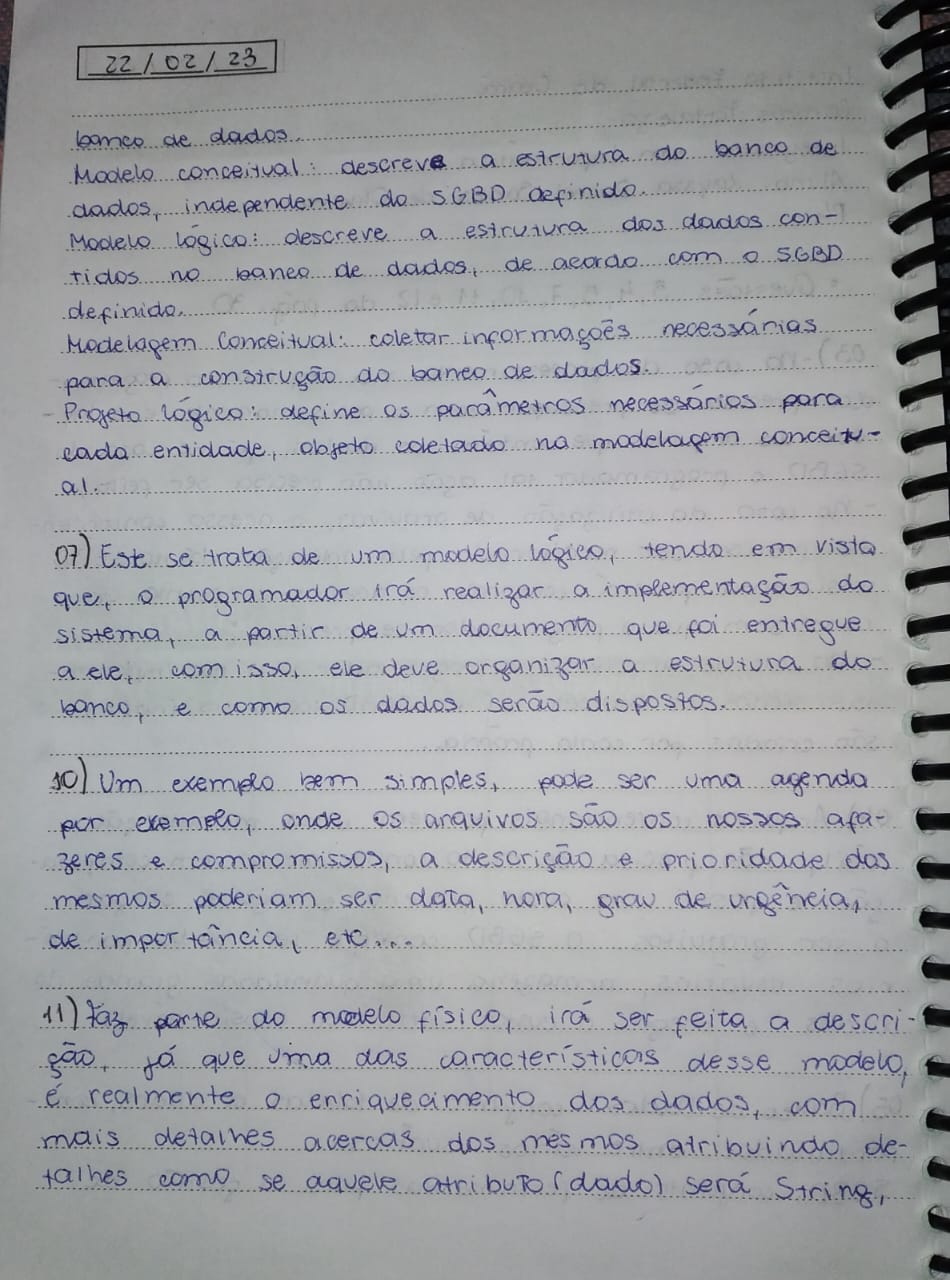 22/02/23
banco de dados.
Modelo conceitual: descreve a estrutura do banco de
dados, independente do SGBD definido.
Modelo lógico: descreve a estrutura dos dados con-
tidos no banco de dados, de acordo com o SGBD
definido.
Modelagem Conceitual: coletar informações necessárias
para a construção do banco de dados.
- Projeto lógico: define os parâmetros necessários para
cada entidade, objeto coletado na modelagem conceitu-
al.
07) Este se trata de um modelo lógico, tendo em vista
que, o programador irá realizar a implementação do
sistema, a partir de um documento que foi entregue
a ele, com isso, ele deve organizar a estrutura do
banco, e como os dados serão dispostos.
10) Um exemplo bem simples, pode ser uma agenda
por exemplo, onde os arquivos são os nossos afa-
zeres e compromissos, a descrição e prioridade dos
mesmos poderiam ser data, hora, grau de urgência,
de importância, etc...
11) Faz parte do modelo físico, irá ser feita a descri-
ção, já que uma das características desse modelo,
é realmente o enriquecimento dos dados, com
mais detalhes acercas dos mesmos atribuindo de-
talhes como se aquele atributo (dado) será String,